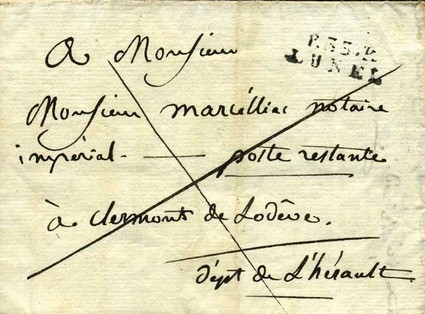 A Monsieur
P.33.P.
LUNEL
Monsieur marcélliac notaire
impérial — poste restante
à Clermont de Lodève.
dépt de L'hérault.